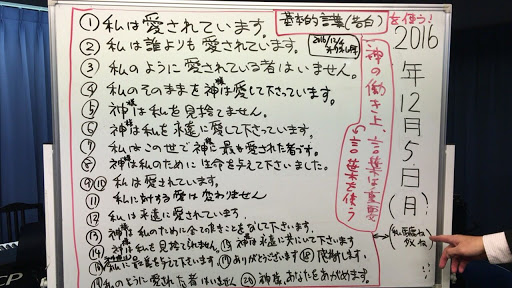 基本的言葉(告白)を使う!
① 私は愛されています。
② 私は誰よりも愛されています。
③ 私のように愛されている者はいません。
④ 私のそのままを神様は愛して下さっています。
⑤ 神様は私を見捨てません。
⑥ 神様は私を永遠に愛して下さっています。
⑦ 私はこの世で神様に最も愛された者です。
⑧ 神様は私のために生命を与えて下さいました。
⑨⑩ 私は愛されています。
⑪ 私に対する愛は変わりません
⑫ 私は永遠に愛されています。
⑬ 神様は私のために全てのことをなして下さいます。
⑭ 神様は私を見捨てられません。⑮ 神様は永遠に共にいて下さいます
私に最善を与えて下さいます。⑰ ありがとうございます ⑱ 感謝します。
私のように愛された者はいません ⑳ 神様、あなたをあがめます。
神の働き上、言葉は重要
の言葉を使う
2016年12月5日(月)